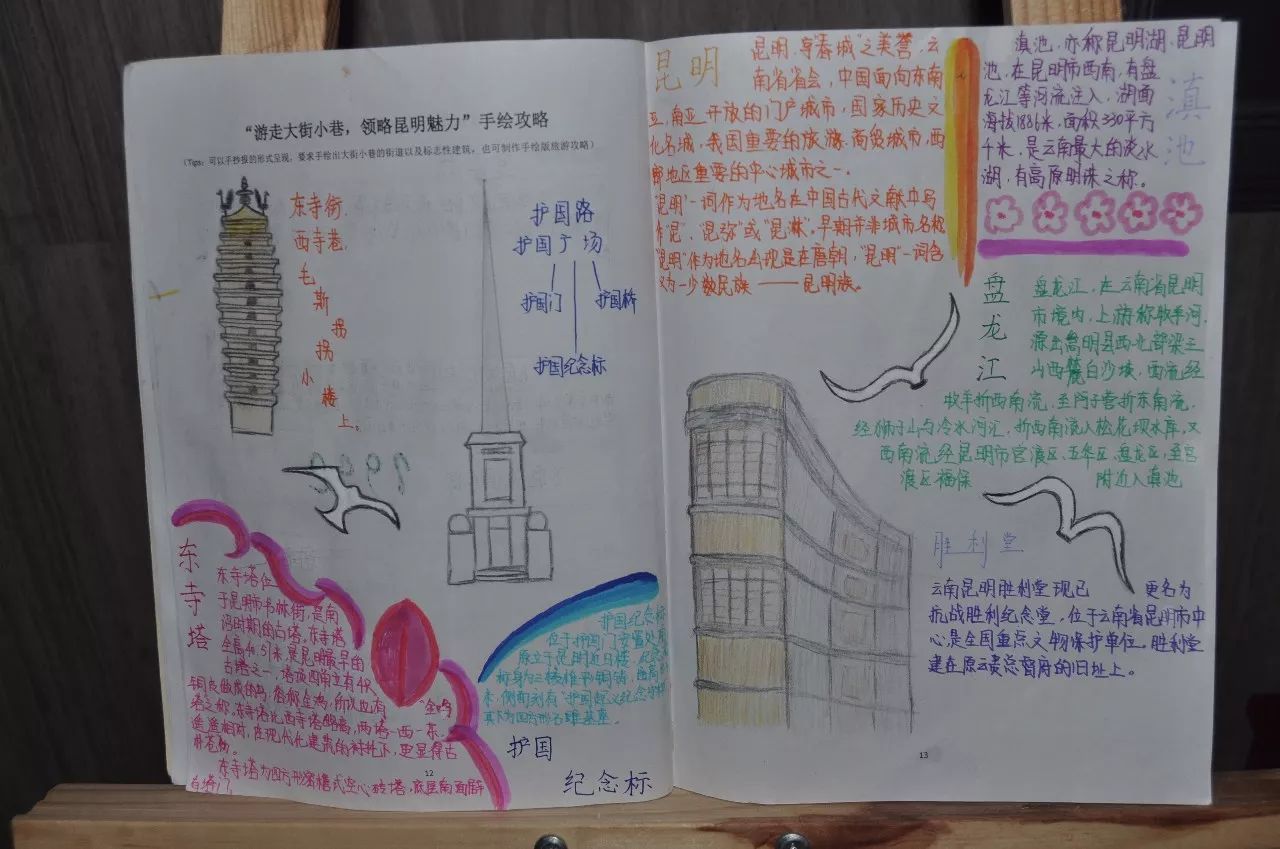 “游走大街小巷，领略昆明魅力”手绘攻略
（Tips：可以手抄报的形式呈现，要求手绘出大街小巷的街道以及标志性建筑，也可制作手绘版旅游攻略）
东寺街，
西寺巷，
毛
斯
拐
拐
小
楼
上。
护国路
护国广场
护国门
护国桥
护国纪念标
东寺塔
东寺塔位
于昆明市书林街，是南
诏时期的古塔，东寺塔
全高40.51米，是昆明最早的
古塔之一，塔顶四角立有4只
铜皮做成的鸟，俗称金鸡，所以也有“金鸡
塔之称。东寺塔北西寺塔略高，两塔一西一东，
遥遥相对，在现代化建筑的衬托下，更显得古
朴苍劲。
东寺塔为四方形密檐式空心砖塔，底层南面辟
12
护国纪念标
位于护国门
原立于昆明近日楼，
标身为三棱锥形铜铸，
米，侧面刻有“护国起义纪念标
其下为四方形石雕基座。
护国
纪念标
昆明
昆明，享“春城”之美誉，云
南省省会，中国面向东南
亚，南亚开放的门户城市，国家历史文
化名城，我国重要的旅游、商贸城市，西
部地区重要的中心城市之一。
“昆明”一词作为地名在中国古代文献中写
作“昆”、“昆弥”或“昆淋”。早期并非城市名称
“昆明”作为地名出现是在唐朝，“昆明”一词含
义为一少数民族——昆明族。
滇池
滇池，亦称昆明湖、昆明
池，在昆明市西南，有盘
龙江等河流注入，湖面
海拔1886米，面积330平方
千米，是云南最大的淡水
湖，有高原明珠之称。
盘龙江
盘龙江，在云南省昆明
市境内，上游称牧羊河，
源出嵩明县西北部梁王
山西麓白沙坡，西流经
牧羊折西南流，至阿子营折东南流，
经狮子山与冷水河汇，折西南流入松花坝水库，又
西南流经昆明市官渡区、五华区、盘龙区，至官
渡区福保附近入滇池
胜利堂
云南昆明胜利堂现已更名为
抗战胜利纪念堂，位于云南省昆明市中
心，是全国重点文物保护单位。胜利堂
建在原云贵总督府的旧址上。
13